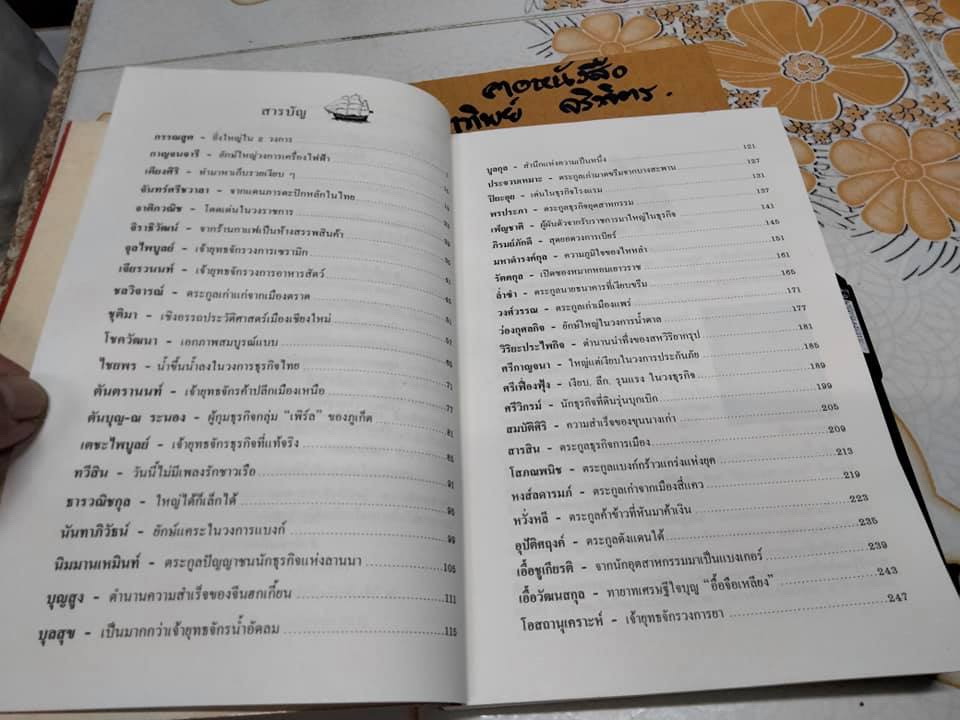 สารบัญ
กรรณสูต - ยิ่งใหญ่ใน ๕ วงการ
กาญจนจารี - ยักษ์ใหญ่วงการเครื่องไฟฟ้า
เคียงศิริ - ทำมาหาเก็บรวยเงียบ ๆ
จันทร์ศรีชวาลา - จากแดนภารตะปักหลักในไทย
จาติกวณิช - โดดเด่นในวงราชการ
จิราธิวัฒน์ - จากร้านกาแฟเป็นห้างสรรพสินค้า
จุลไพบูลย์ - เจ้ายุทธจักรวงการเซรามิก
เจียรวนนท์ - เจ้ายุทธจักรวงการอาหารสัตว์
ชลวิจารณ์ - ตระกูลเก่าแก่จากเมืองตราด
ชุติมา - เชิงอรรถประวัติศาสตร์เมืองเชียงใหม่
โชควัฒนา - เอกภาพสมบูรณ์แบบ
ไชยพร - น้ำขึ้นน้ำลงในวงการธุรกิจไทย
ตันตรานนท์ - เจ้ายุทธจักรค้าปลีกเมืองเหนือ 77
ตันบุญ-ณ ระนอง - ผู้กุมธุรกิจกลุ่ม "เพิร์ล" ของภูเก็ต 81
เตชะไพบูลย์ - เจ้ายุทธจักรธุรกิจที่แท้จริง 85
ทวีสิน - วันนี้ไม่มีเพลงรักชาวเรือ 91
ธารวณิชกุล - ใหญ่ได้ก็เล็กได้ 95
นันทาภิวัธน์ - ยักษ์แคระในวงการแบงก์ 99
นิมมานเหมินท์ - ตระกูลปัญญาชนนักธุรกิจแห่งลานนา 105
บุญสูง - ตำนานความสำเร็จของจีนฮกเกี้ยน 111
บุลสุข - เป็นมากกว่าเจ้ายุทธจักรน้ำอัดลม 115
บูลกุล - สำนึกแห่งความเป็นหนึ่ง 121
ประจวบเหมาะ - ตระกูลเก่ามาดขรึมจากบางสะพาน 127
ปิยะอุย - เด่นในธุรกิจโรงแรม 131
พรประภา - ตระกูลธุรกิจอุตสาหกรรม 137
เพ็ญชาติ - ผู้ผันตัวจากรับราชการมาใหญ่ในธุรกิจ 141
ภิรมย์ภักดี - สุดยอดวงการเบียร์ 145
มหาดำรงค์กุล - ความภูมิใจของไหหลำ 151
รัตตกุล - เปิดซองหมากหอมเยาวราช 161
ล่ำซำ - ตระกูลนายธนาคารที่เงียบขรึม 165
วงศ์วรรณ - ตระกูลเก่าเมืองแพร่ 171
ว่องกุศลกิจ - ยักษ์ใหญ่ในวงการน้ำตาล 177
วิริยะประไพกิจ - ตำนานน่าทึ่งของสหวิริยากรุป 181
ศรีกาญจนา - ใหญ่แต่เงียบในวงการประกันภัย 185
ศรีเฟื่องฟุ้ง - เงียบ. ลึก. รุนแรง ในวงธุรกิจ 189
ศรีวิกรม์ - นักธุรกิจที่ดินรุ่นบุกเบิก 199
สมบัติศิริ - ความสำเร็จของขุนนางเก่า 205
สารสิน - ตระกูลธุรกิจการเมือง 209
โสภณพนิช - ตระกูลแบงก์กร้าวแกร่งแห่งยุค 213
หงส์ลดารมภ์ - ตระกูลเก่าจากเมืองสี่แคว 219
หวั่งหลี - ตระกูลค้าข้าวที่หันมาค้าเงิน 223
อุปัติศฤงค์ - ตระกูลดังแดนใต้ 235
เอื้อชูเกียรติ - จากนักอุตสาหกรรมมาเป็นแบงเกอร์ 239
เอื้อวัฒนสกุล - ทายาทเศรษฐีใจบุญ "อื้อจือเหลียง" 243
โอสถานุเคราะห์ - เจ้ายุทธจักรวงการยา 247